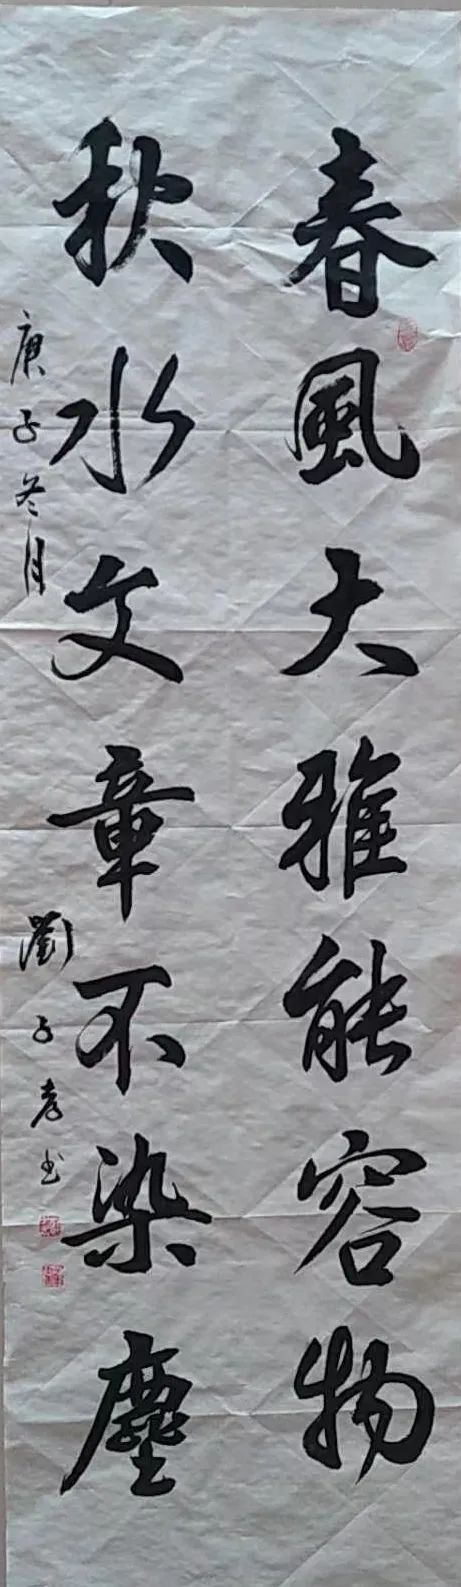 春風大雅能容物
秋水文章不染塵
庚子冬月
劉子孝书